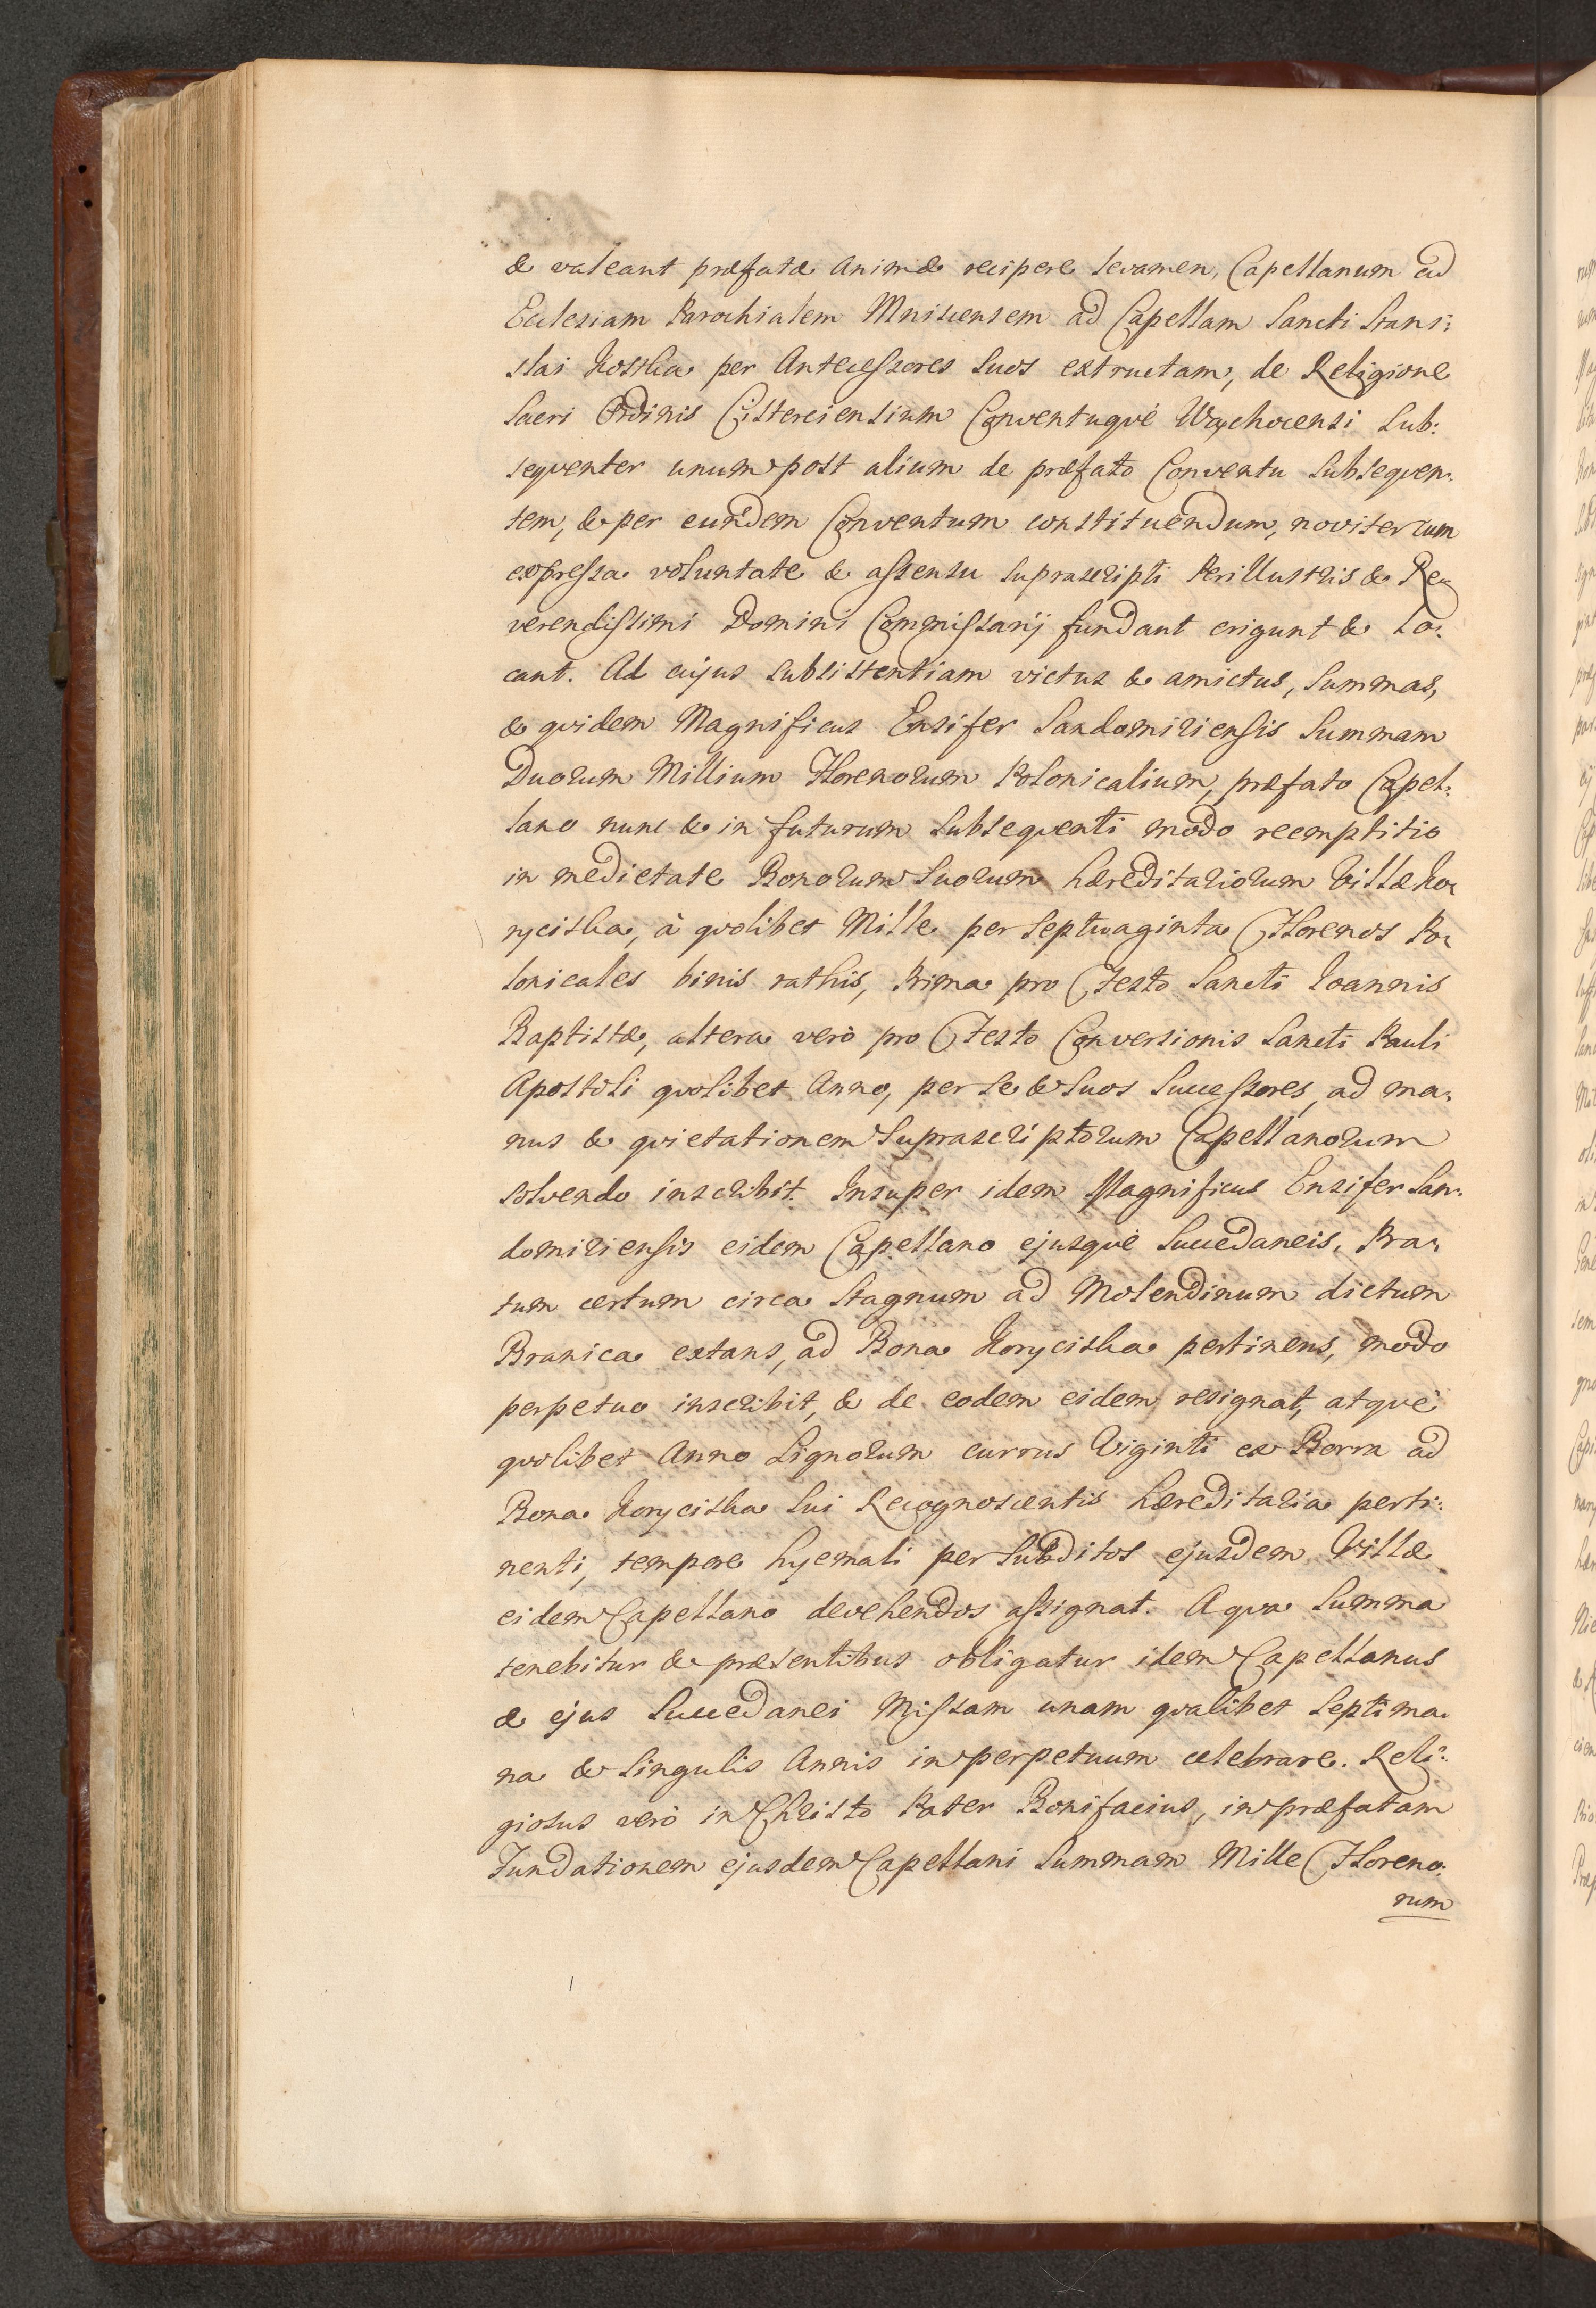 & valeant præfatæ Animæ recipere levamen, Capellanum ad
Ecclesiam Parochialem Mniscensem ad Capellam Sancti Stani:
slai Kostka per Antecessores suos extructam, de Religione
Sacri Ordinis Cisterciensium Conventuqvè Wąchocensi Sub:
seqventer unum post alium de præfato Conventu Subseqven:
tem, & per eundem Conventum constituendum, noviter cum
expressa voluntate & assensu suprascripti Perillustris & Re:
verendissimi Domini Commissarij fundant erigunt & Lo:
cant. Ad cujus subsistentiam victus & amictus, Summas,
& qvidem Magnificus Ensifer Sandomiriensis Summam
Duorum Millium Florenorum Polonicalium, præfato Capel:
lano nunc & in futurum Subseqventi modo reemptitio
in medietate Bonorum Suorum hæreditariorum Villæ Ko:
ryciska, à qvolibet Mille per Septuaginta Florenos Po:
lonicales binis rathis, Prima pro Festo Sancti Ioannis
Baptistæ, altera verò pro Festo Conversionis Sancti Pauli
Apostoli qvolibet Anno, per se & Suos Successores, ad ma:
nus & qvietationem Suprascriptorum Capellanorum
solvendo inscribit. Insuper idem Magnificus Ensifer San:
domiriensis eidem Capellano ejusqvè Succedaneis, Pra:
tum certum circa Stagnum ad Molendinum dictum
Branica extans, ad Bona Korycishka pertinens, modo
perpetuo inscribit, & de eodem eidem resignat, atqvè
qvolibet Anno Lignorum currus Viginti ex Borra ad
Bona Koryciska sui Recognoscentis hæreditaria perti:
nenti, tempore hyemali per Subditos ejusdem Villæ
eidem Capellano devehendos assignat. A qva Summa
tenebitur & præsentibus obligatur idem Capellanus
& ejus Succedanei Missam unam qvalibet Septima:
na & Singulis Annis in perpetuum celebrare. Reli:
giosus verò in Christo Pater Bonifacius, in præfatam
Fundationem ejusdem Capellani Summam Mille Floreno:
rum